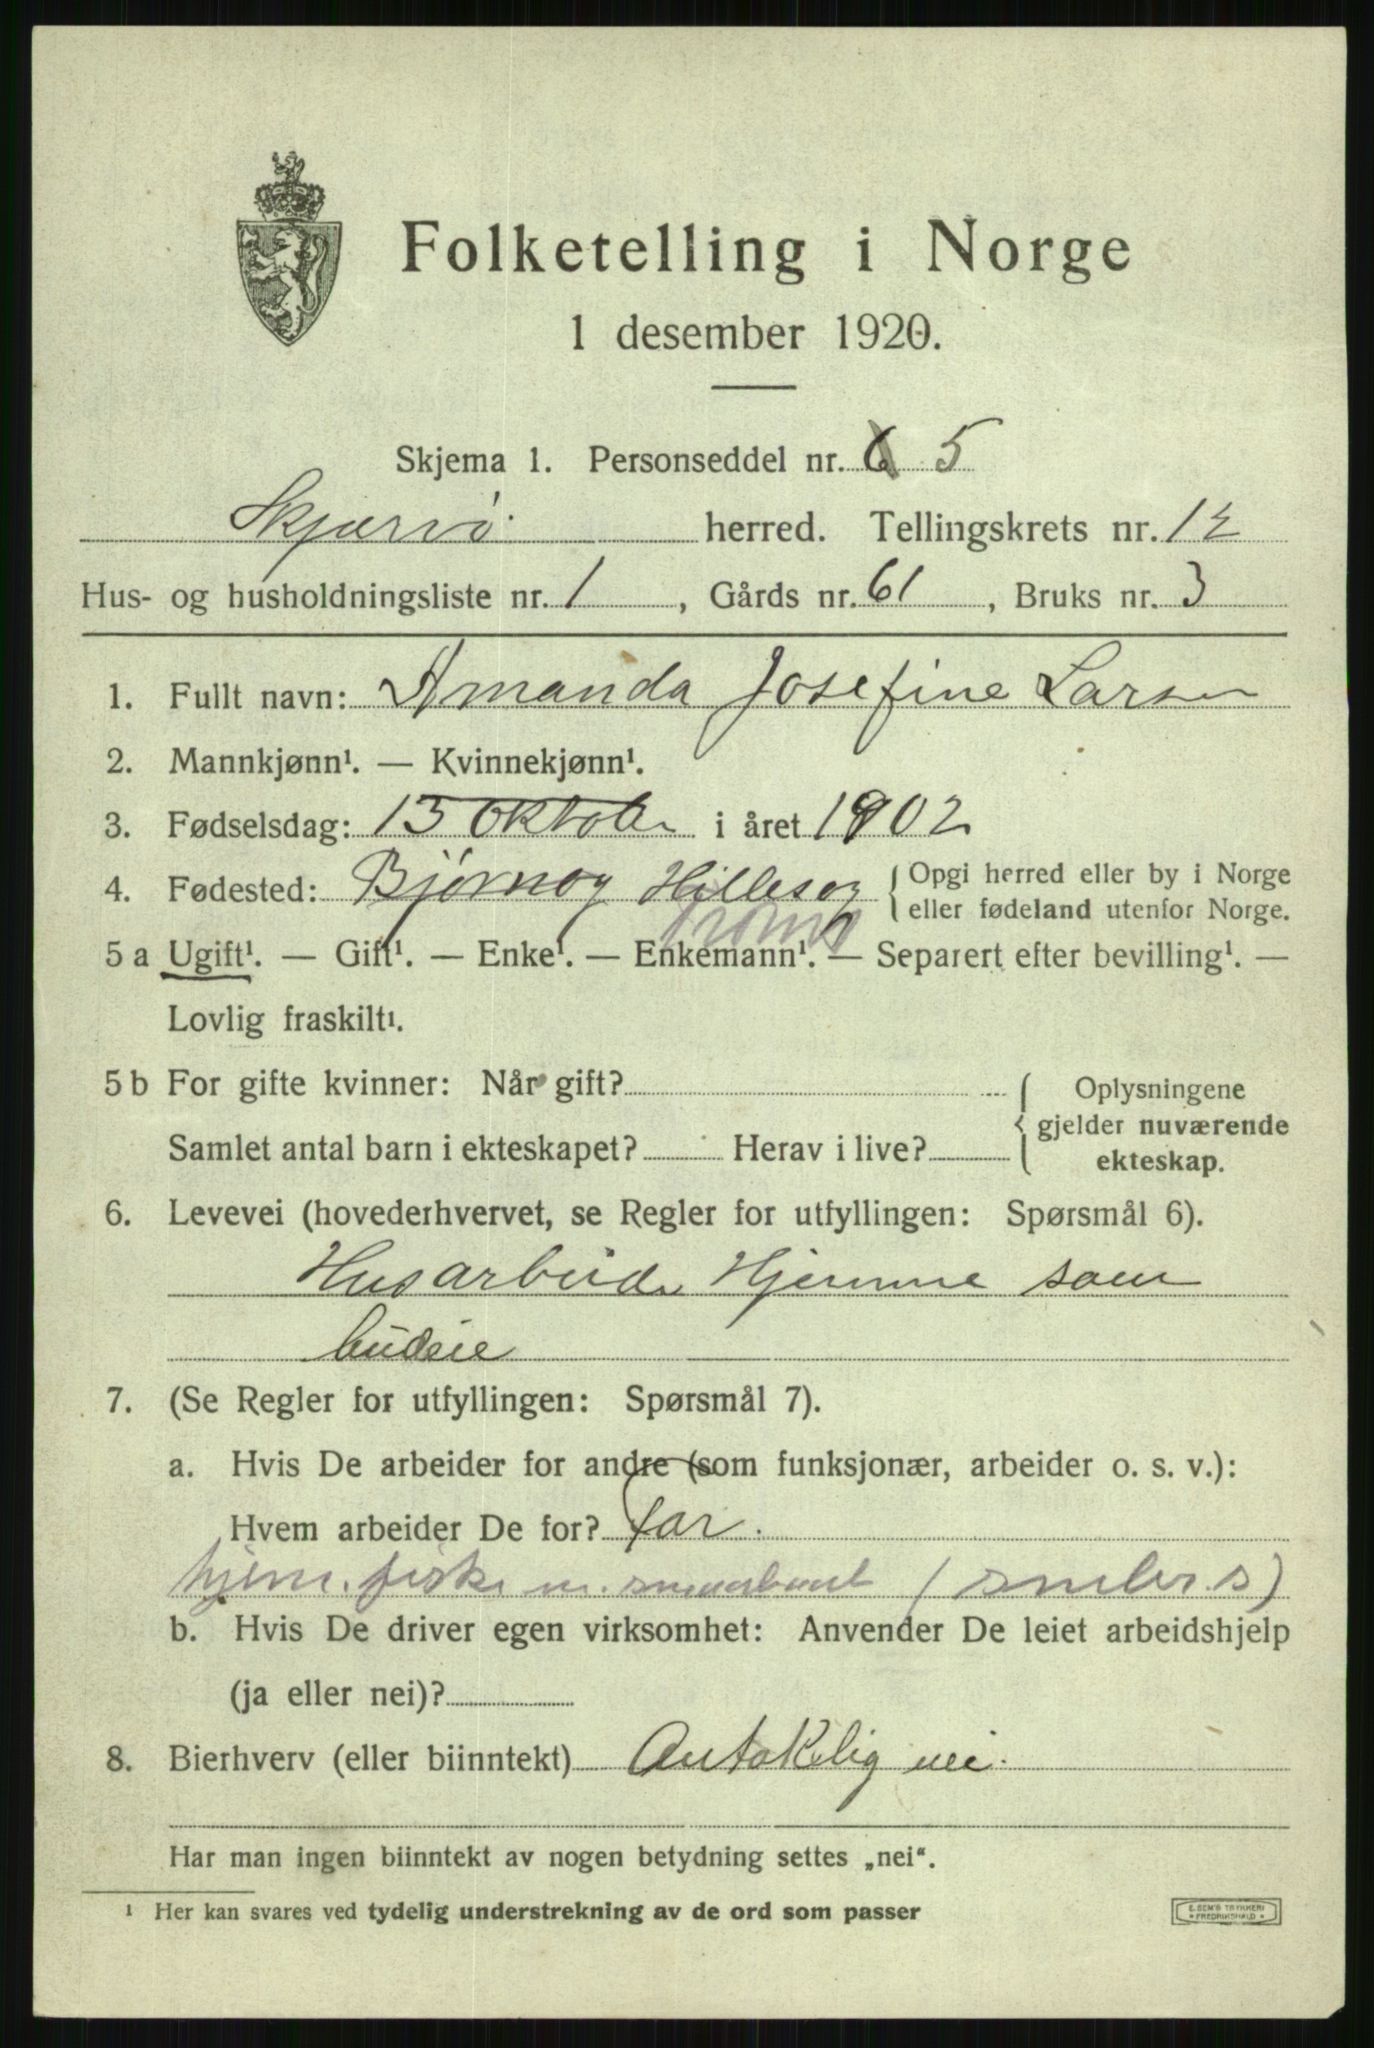 Folketelling i Norge
1 desember 1920.
Skjema 1. Personseddel nr. 6 5
Skjærvø herred. Tellingskrets nr. 12
Hus- og husholdningsliste nr. 1, Gårds nr. 61, Bruks nr. 3
1. Fullt navn: Amanda Josefine Larsen
2. Mannkjønn¹. — Kvinnekjønn¹.
3. Fødselsdag: 15 Oktober i året 1902
4. Fødested: Bjørnøy Hillesøy {Opgi herred eller by i Norge
eller fødeland utenfor Norge.
Troms
5 a Ugift¹. — Gift¹. — Enke¹. — Enkemann¹. — Separert efter bevilling¹. —
Lovlig fraskilt¹.
5 b For gifte kvinner: Når gift? {Oplysningene
gjelder nuværende
Samlet antal barn i ekteskapet? Herav i live?
ekteskap.
6. Levevei (hovederhvervet, se Regler for utfyllingen: Spørsmål 6).
Husarbeide Hjemme som
budeie
7. (Se Regler for utfyllingen: Spørsmål 7).
a. Hvis De arbeider for andre (som funksjonær, arbeider o. s. v.):
Hvem arbeider De for? far.
hjem. fiske m. (
b. Hvis De driver egen virksomhet: Anvender De leiet arbeidshjelp
(ja eller nei)?
8. Bierhverv (eller biinntekt) Antakelig nei.
Har man ingen biinntekt av nogen betydning settes „nei“.
¹ Her kan svares ved tydelig understrekning av de ord som passer
E. SEM'S TRYKKERI
* FREDRIKSHALD *